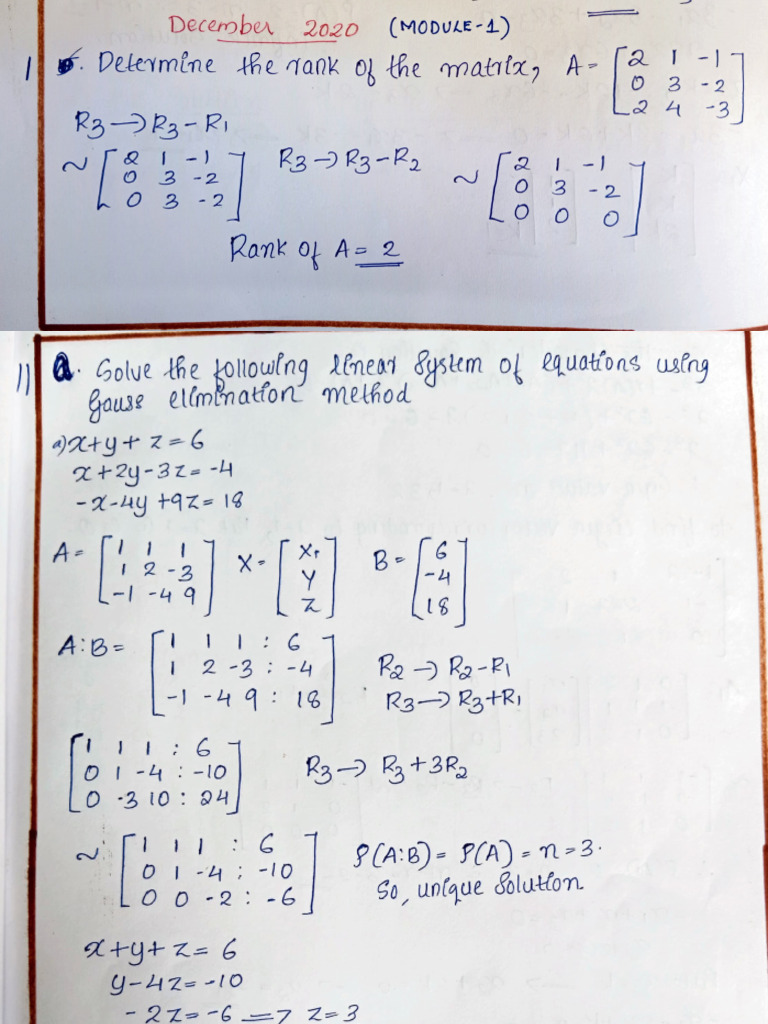 December 2020 (MODULE-1)
1 . Determine the rank of the matrix, A = [2 1 -1
0 3 -2
2 4 -3]
R3 → R3 - R1
~ [2 1 -1
0 3 -2
0 3 -2] R3 → R3 - R2 ~ [2 1 -1
0 3 -2
0 0 0]
Rank of A = 2
11 a. Solve the following linear System of equations using
Gauss elimination method
a) x+y+z=6
x+2y-3z=-4
-x-4y+9z=18
A = [1 1 1
1 2 -3
-1 -4 9] X = [x
y
z] B = [6
-4
18]
A:B = [1 1 1 : 6
1 2 -3 : -4
-1 -4 9 : 18] R2 → R2-R1
R3 → R3+R1
[1 1 1 : 6
0 1 -4 : -10
0 -3 10 : 24] R3 → R3+3R2
~ [1 1 1 : 6
0 1 -4 : -10
0 0 -2 : -6] ρ(A:B) = ρ(A) = n = 3.
So, unique Solution
x+y+z=6
y-4z=-10
-2z=-6 => z=3